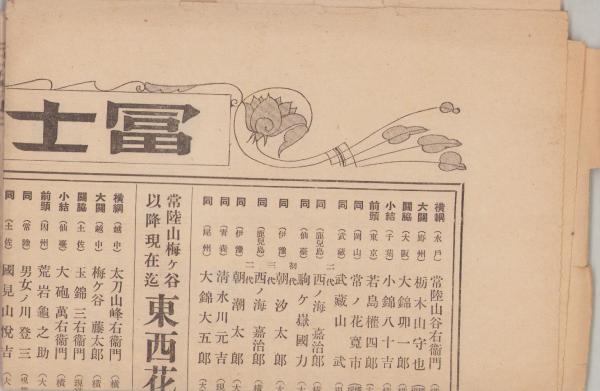 冨士
横綱（水戸）常陸山谷右衛門
大關（野州）栃木山守也
關脇（大阪）大錦卯一郎
小結（千葉）小錦八十吉
前頭（東京）若島權四郎
同（岡山）常ノ花寛市
同（武藏）武藏山武
同（鹿兒島）二代西ノ海嘉治郎
同（仙臺）駒ケ嶽國力
同（伊豫）初代朝汐太郎
同（鹿兒島）三代西ノ海嘉治郎
同（伊豫）二代朝潮太郎
同（青森）清水川元吉
同（尾州）大錦大五郎
常陸山梅ケ谷
以降現在迄
東西花
横綱（越中）太刀山峰右衛門
大關（越中）梅ケ谷藤太郎
關脇（土佐）玉錦三右衛門
小結（仙臺）大砲萬右衛門
前頭（因州）荒岩龜之助
同（常陸）男女ノ川登三
同（土佐）國見山悦吉